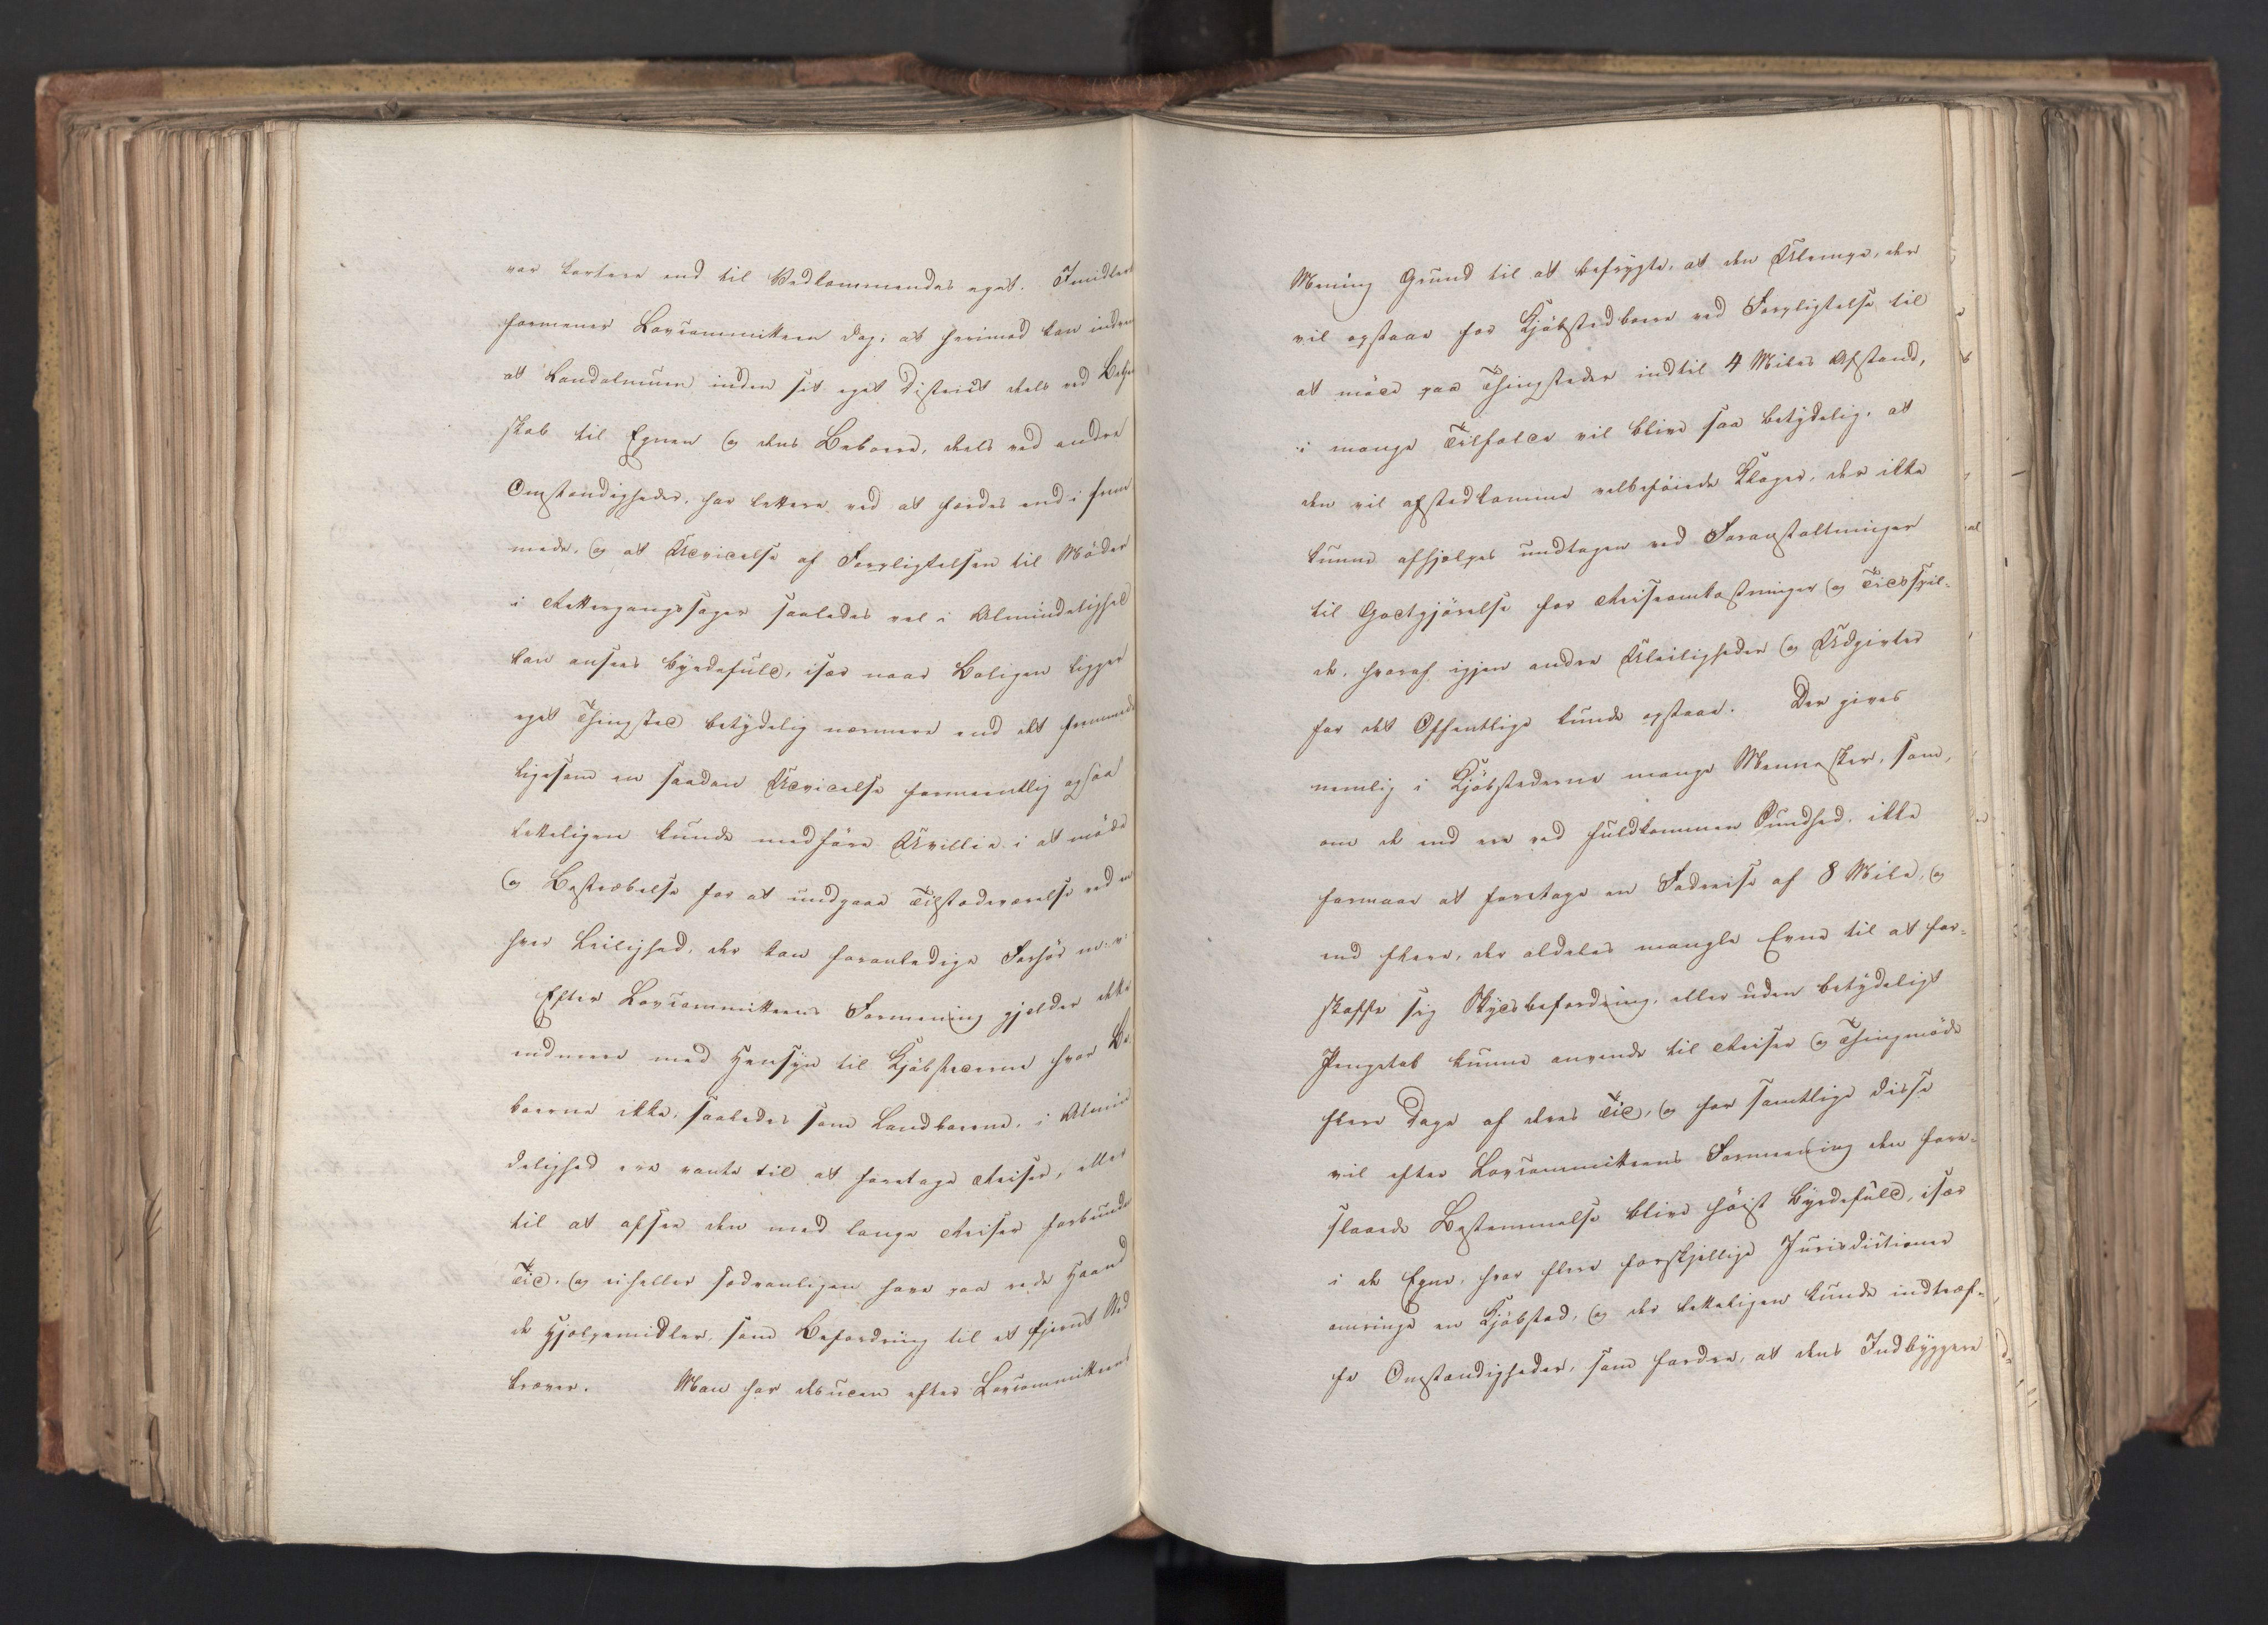 var kortere end til Vedkommendes eget. Imidlert
formener Lovcommitteen dog, at herimod kan indve
at Landalmuen inden sit eget District dels ved
skab til Egnen og dens Beboere, dels ved andre
Omstændigheder, har lettere ved at færdes end i frem
mede, og at Udvidelse af Forpligtelsen til Møder
i Rettergangssager saaledes vel i Almindelighed
kan ansees byrdefuld, især naar Boligen ligger
eget Thingsted betydelig nærmere end det fremmede
ligesom en saadan Udvidelse formeentlig ogsaa
letteligen kunde medføre Uvillie i at møde
og Bestræbelse for at undgaae Tilstedeværelse ved en
hver Leilighed, der kan foranledige Forhør m. v.
Efter Lovcommitteens Formening gjelder dette
endmere med Hensyn til Kjøbstæderne hvor Be-
boerne ikke, saaledes som Landboerne, i Almin
delighed ere vante til at foretage Reiser, eller
til at afsee den med lange Reiser forbundne
Tid, og ei heller sædvanligen have paa rede Haand
de Hjælpemidler, som Befordring til et fjernt Sted
kræver. Man har desuden efter Lovcommitteens
Mening Grund til at befrygte, at den Ulempe, der
vil opstaae for Kjøbstedboere ved Forpligtelse til
at møde paa Thingsteder indtil 4 Miles Afstand,
i mange Tilfælde vil blive saa betydelig, at
den vil afstedkomme velbeføiede Klager, der ikke
kunne afhjælpes undtagen ved Foranstaltninger
til Godtgjørelse for Reiseomkostninger og Tidsspil-
de, hvoraf igjen andre Uleiligheder og Udgifter
for det Offentlige kunde opstaae. Der gives
nemlig i Kjøbstederne mange Mennesker, som,
om de end ere ved fuldkommen Sundhed, ikke
formaae at foretage en Fodreise af 8 Mile, og
end flere, der aldeles mangle Evne til at for-
skaffe sig Skydsbefordring, eller uden betydeligt
Pengetab kunne anvende til Reiser og Thingmøde
flere Dage af deres Tid, og for samtlige disse
vil efter Lovcommitteens Formening den fore-
slaaede Bestemmelse blive høist byrdefuld, især
i de Egne, hvor flere forskjellige Jurisdictioner
omringe en Kjøbsted, og der letteligen kunde indtræf-
fe Omstændigheder, som fordre, at dens Indbyggere